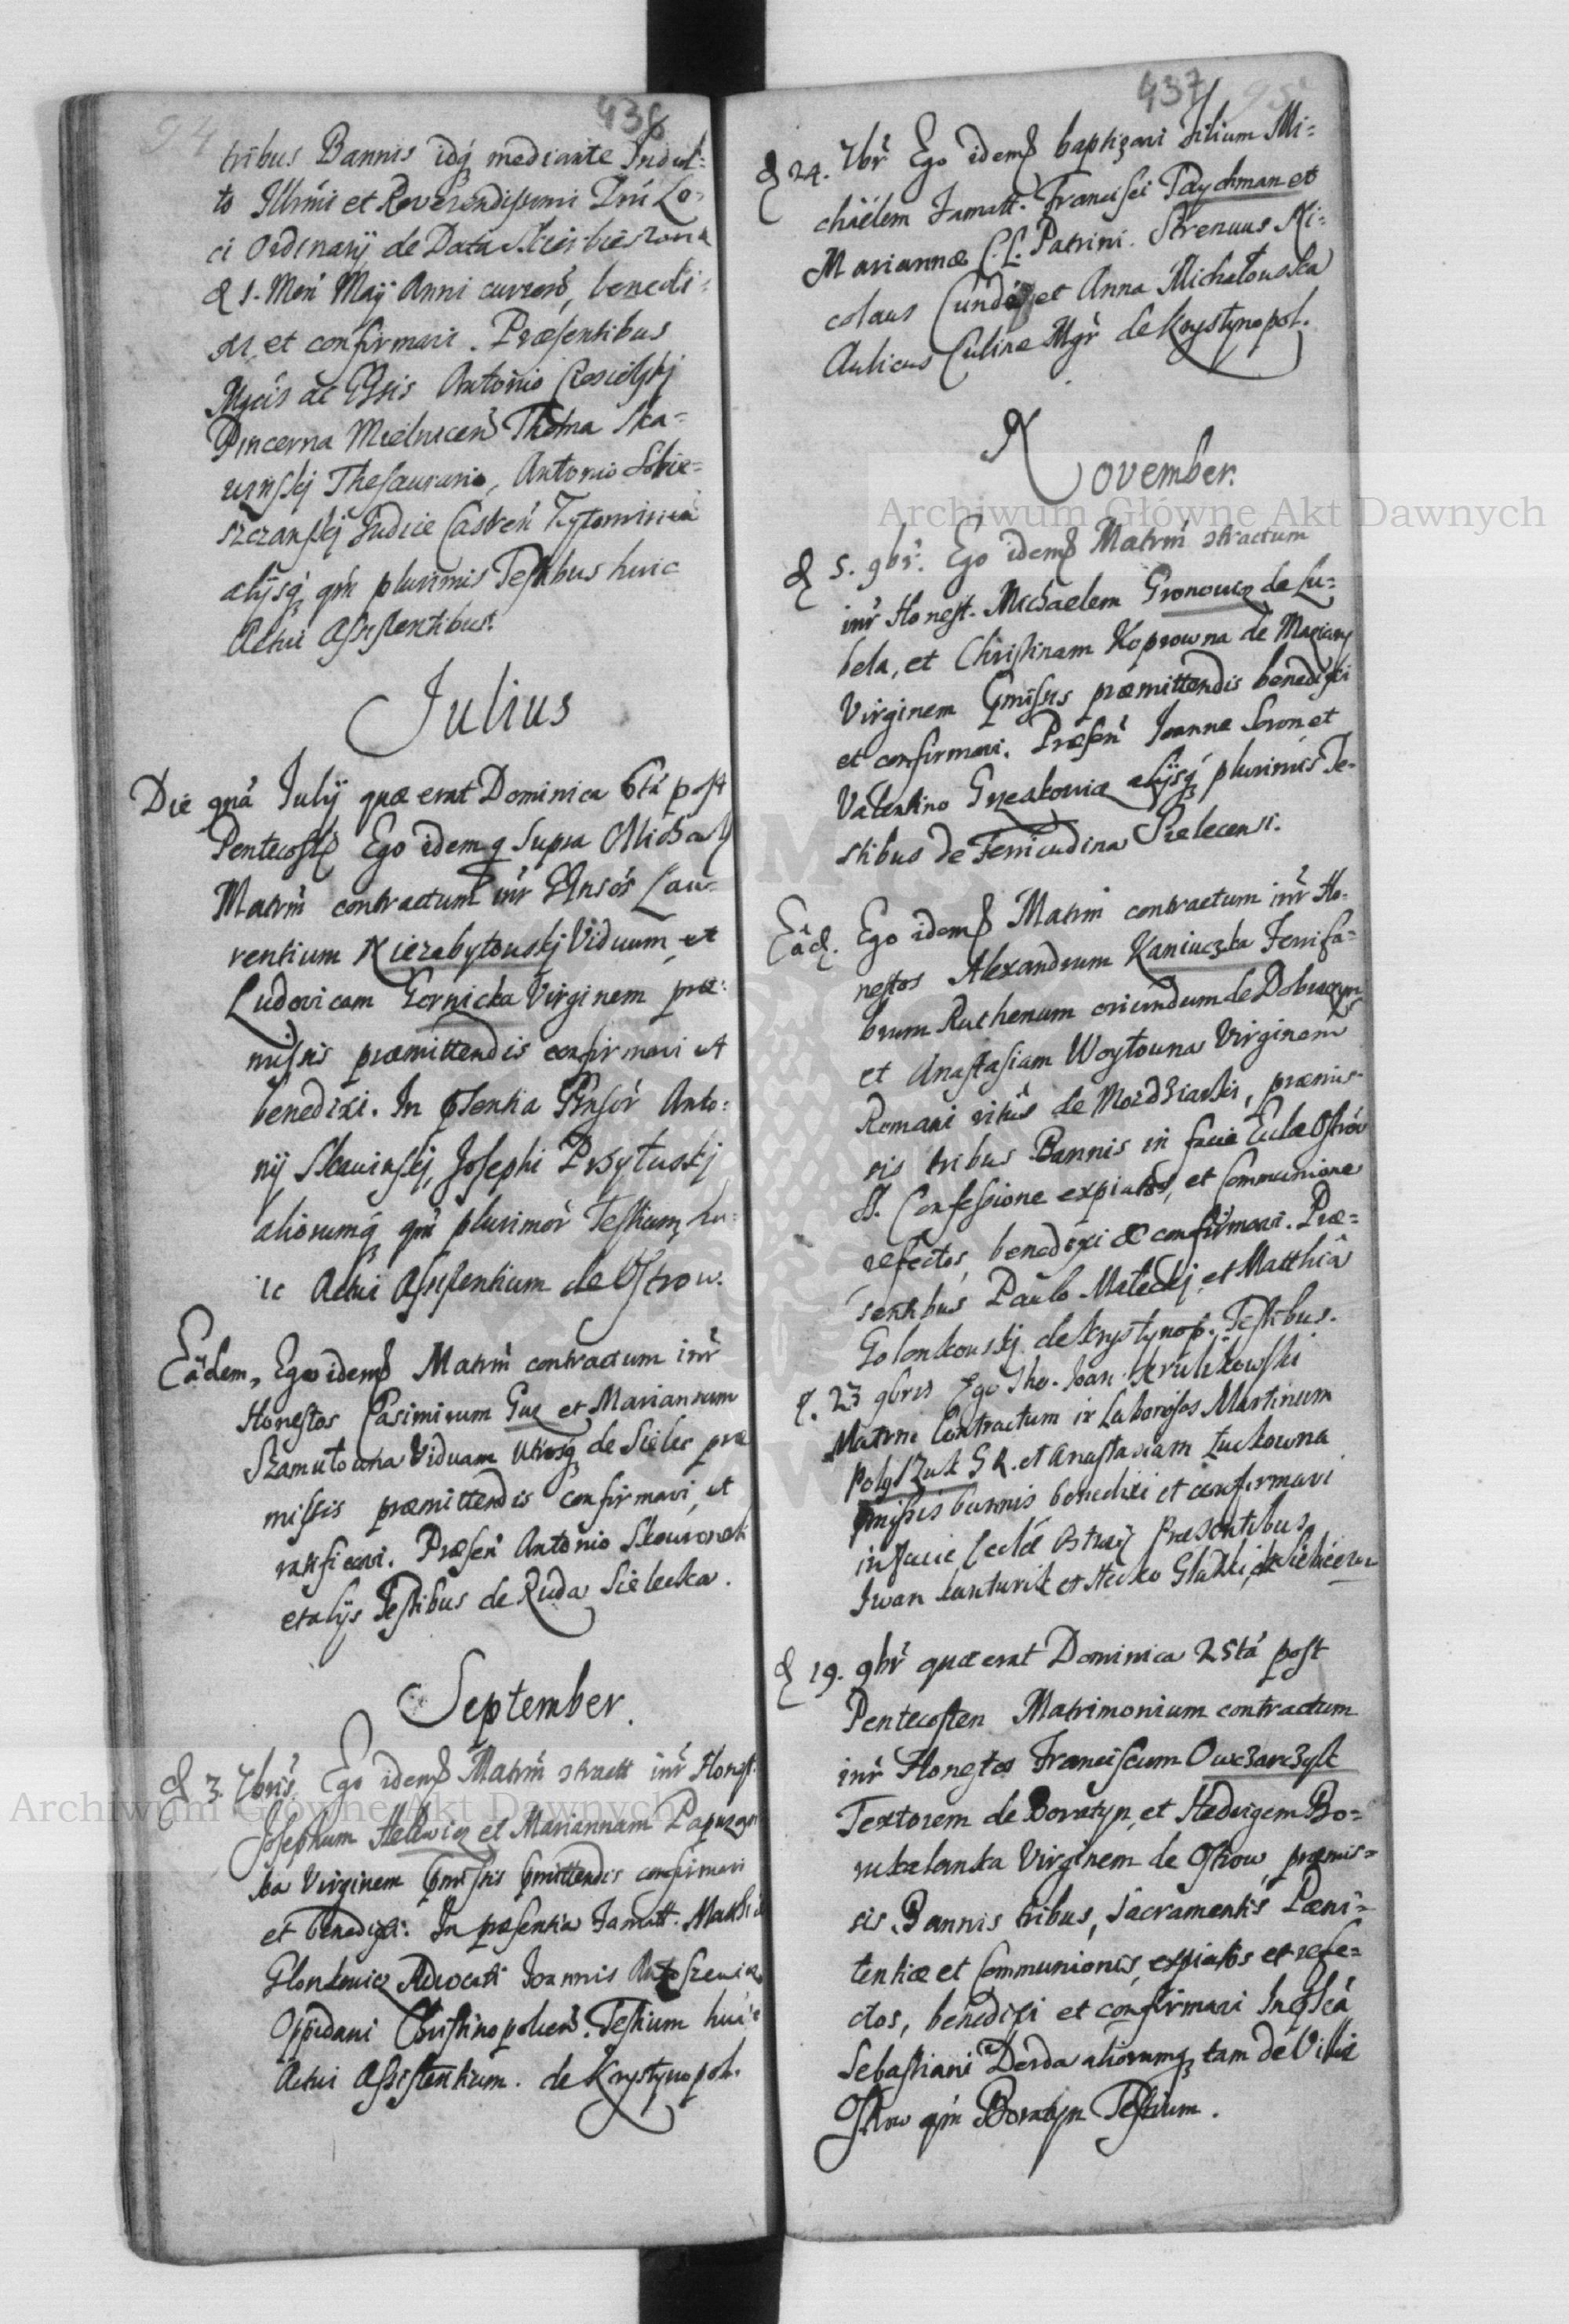 94
438
tribus Bannis idq3 mediante Indul=
to Illrmi et Reverendissimi Dni Lo=
ci Ordinarij de Data Skierbieszow
d 1. Men Maij Anni curren, benedi=
xi, et confirmavi. Præsentibus
Mgcis ac GGsis Antonio Ciesielskj
Pincerna Mielnicen Thoma Ska=
Thesaurario, Antonio Sobie=
szczanskj Judice Castren
alijsq3 qm plurimis Testibus huic
Actui Assistentibus.
Julius
Die 9na Julij quæ erat Dominica 6ta post
Pentecost Ego idem q Supra
Matrm contractum intr GGnsos Lau=
rentium Niezabytowskj Viduum et
Ludovicam Gornicka Virginem præ=
missis præmittendis confirmavi et
benedixi. In pſentia Gnsor Anto=
nij Skawinskj, Josephi Przyłuskj
aliorumq3 qm plurimor Testium hu=
ic Actui Assistentium de Ostrow.
Eâdem, Ego idem Matrm contractum intr
Honestos Casimirum Guz et Mariannam
Szamutowna Viduam utrosq3 de Sielec præ
missis præmittendis confirmavi, et
ratificavi. Præsen Antonio Skowronek
et alijs Testibus de Ruda Sielecka.
September.
d 3. 7bris. Ego idem Matrm ctractt intr Honest.
Josephum Hellwig et Mariannam
Virginem pmissis pmittendis confirmavi
et benedixi. In præsentia Famatt. Mathiæ
Glonkowicz Advocati Joannis
Oppidani Christinopolien. Testium huic
Actui Assistentium. de Krystynopol.
437
95
d 24. 7br Ego idem baptizavi Filium Mi=
chaëlem Famatt. Francisci Taychman et
Mariannæ C. L. Patrini. Strenuus Ni=
colaus et Anna Michałowska
Aulicus Culinæ Mgr de Krystynopol.
November.
Archiwum Główne Akt Dawnych
d 5. 9br. Ego idem Matrm ctractum
intr Honest. Michaelem Gronowicz de Lu=
bela, et Christinam Koprowna de Maziarn
Virginem pmissis præmittendis benedixi
et confirmavi. Præsen Joanne Soron et
Valentino alijsq3 plurimis Te=
stibus de Ferricudina Sielecensi.
Eâd. Ego idem Matrm contractum intr Ho=
nestos Alexandrum Kaniuczka Ferrifa=
brum Ruthenum oriundum de Dobraczyn
et Anastasiam Woytowna Virginem
Romani ritus de Mozdziarki, præmis=
sis tribus Bannis in facie Eccłæ Ostrov
S. Confessione expiatos, et Communione
refectos, benedixi et confirmavi. Præ=
sentibus Paulo Małeckj, et Matthia
Golonkowskj de Krystynop. Testibus.
d. 23 9bris Ego Tho. Joan: Krulikowski
Matrm Contractum ir Laboriosos Martinum
Poliszuk G R. et Anastasiam Łuckowna
pmissis bannis benedixi et confirmavi
in facie Eccłæ Ostrovij Præsentibus
Iwan et Hecko
d 19. 9br quæ erat Dominica 25ta post
Pentecosten Matrimonium contractum
intr Honestos Franciscum Owczarczyk
Textorem de Boratyn, et Hedvigem Bo=
Virginem de Ostrow, præmis=
sis Bannis tribus, Sacramentis Pæni=
tentiæ et Communionis, expiatos et refe=
ctos, benedixi et confirmavi In pſcia
Sebastiani Derda aliorumq3 tam de Villa
Ostrow qm Boratyn Testium.
Archiwum Główne Akt Dawnych